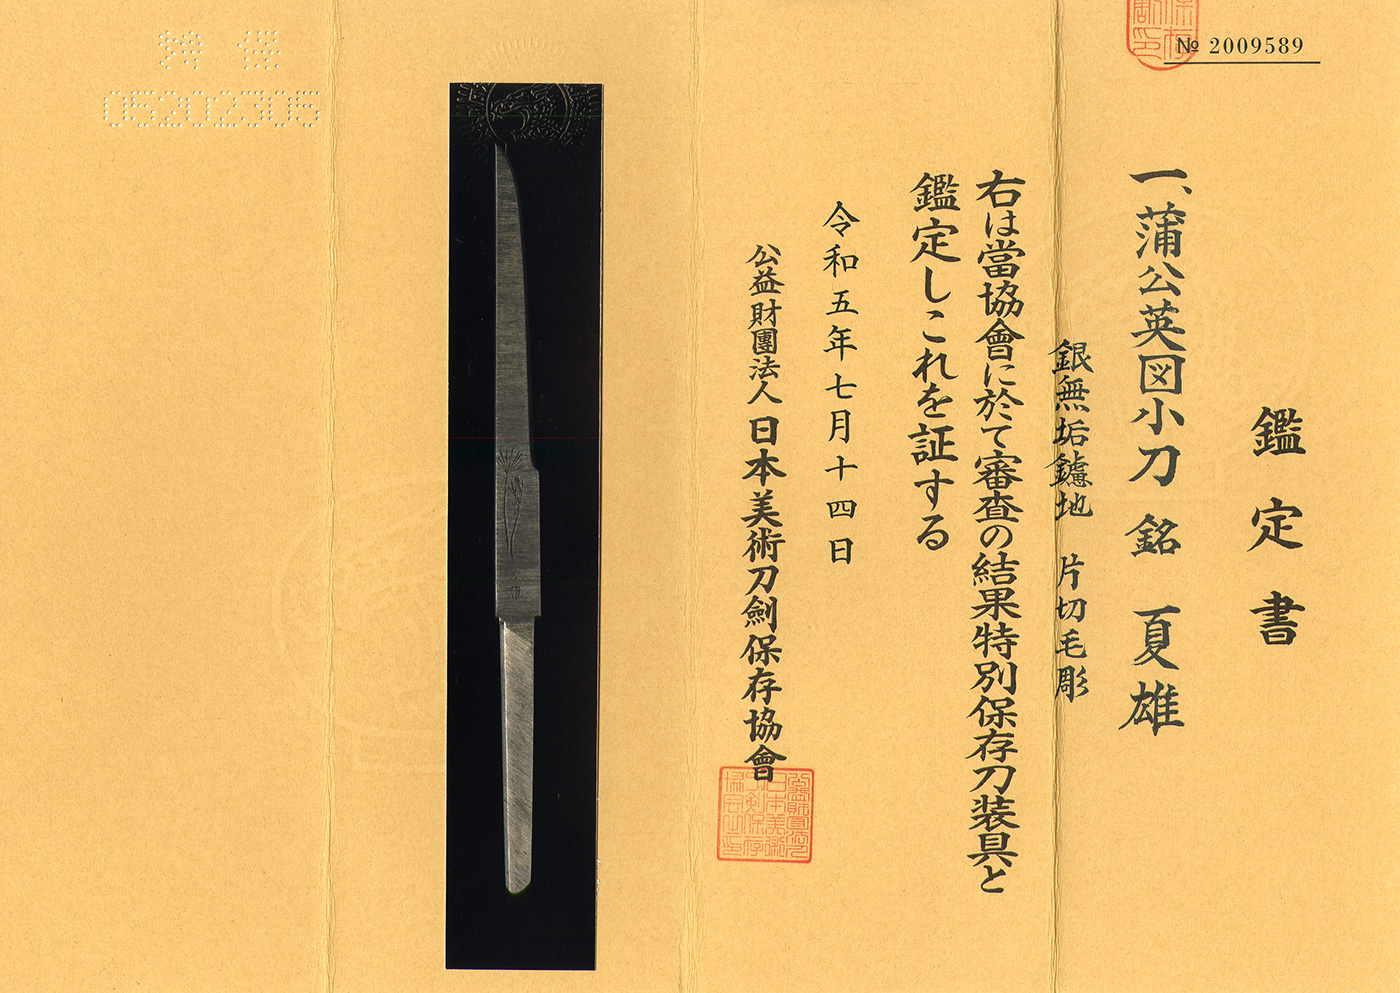 № 2009589
鑑定書
一、蒲公英図小刀 銘 夏雄
銀無垢鑢地 片切毛彫
右は當協會に於て審査の結果特別保存刀装具と
鑑定しこれを証する
令和五年七月十四日
公益財團法人 日本美術刀劍保存協會
05202305